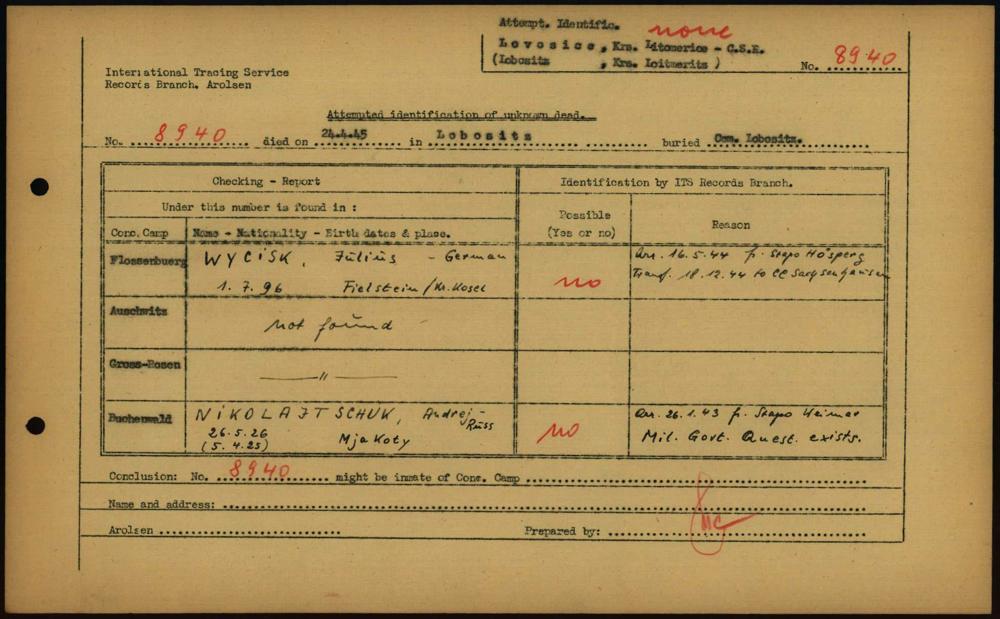 Attempt. Identific. none
Lovosice, Krs. Litomerice - C.S.R.
(Lobositz , Krs. Leitmeritz ) No. 8940
International Tracing Service
Records Branch, Arolsen
Attempted identification of unknown dead.
No. 8940 died on 24.4.45 in Lobositz buried Cem. Lobositz.
Checking - Report Identification by ITS Records Branch.
Under this number is found in :
Conc. Camp Name - Nationality - Birth dates & place. Possible (Yes or no) Reason
Flossenbuerg WYCISK, Julius - German
1.7.96 Fielstein/Kr. Kosel no Arr. 16.5.44 fr. Stapo Hösperg
Transf. 18.12.44 to CC Sachsenhausen
Auschwitz not found
Gross-Rosen — " —
Buchenwald NIKOLAJTSCHUK, Andrej - Russ
26.5.26 Mjakoty
(5.4.25) no Arr. 26.1.43 fr. Stapo Weimar
Mil. Govt. Quest. exists.
Conclusion: No. 8940 might be inmate of Conc. Camp
Name and address:
Arolsen Prepared by: